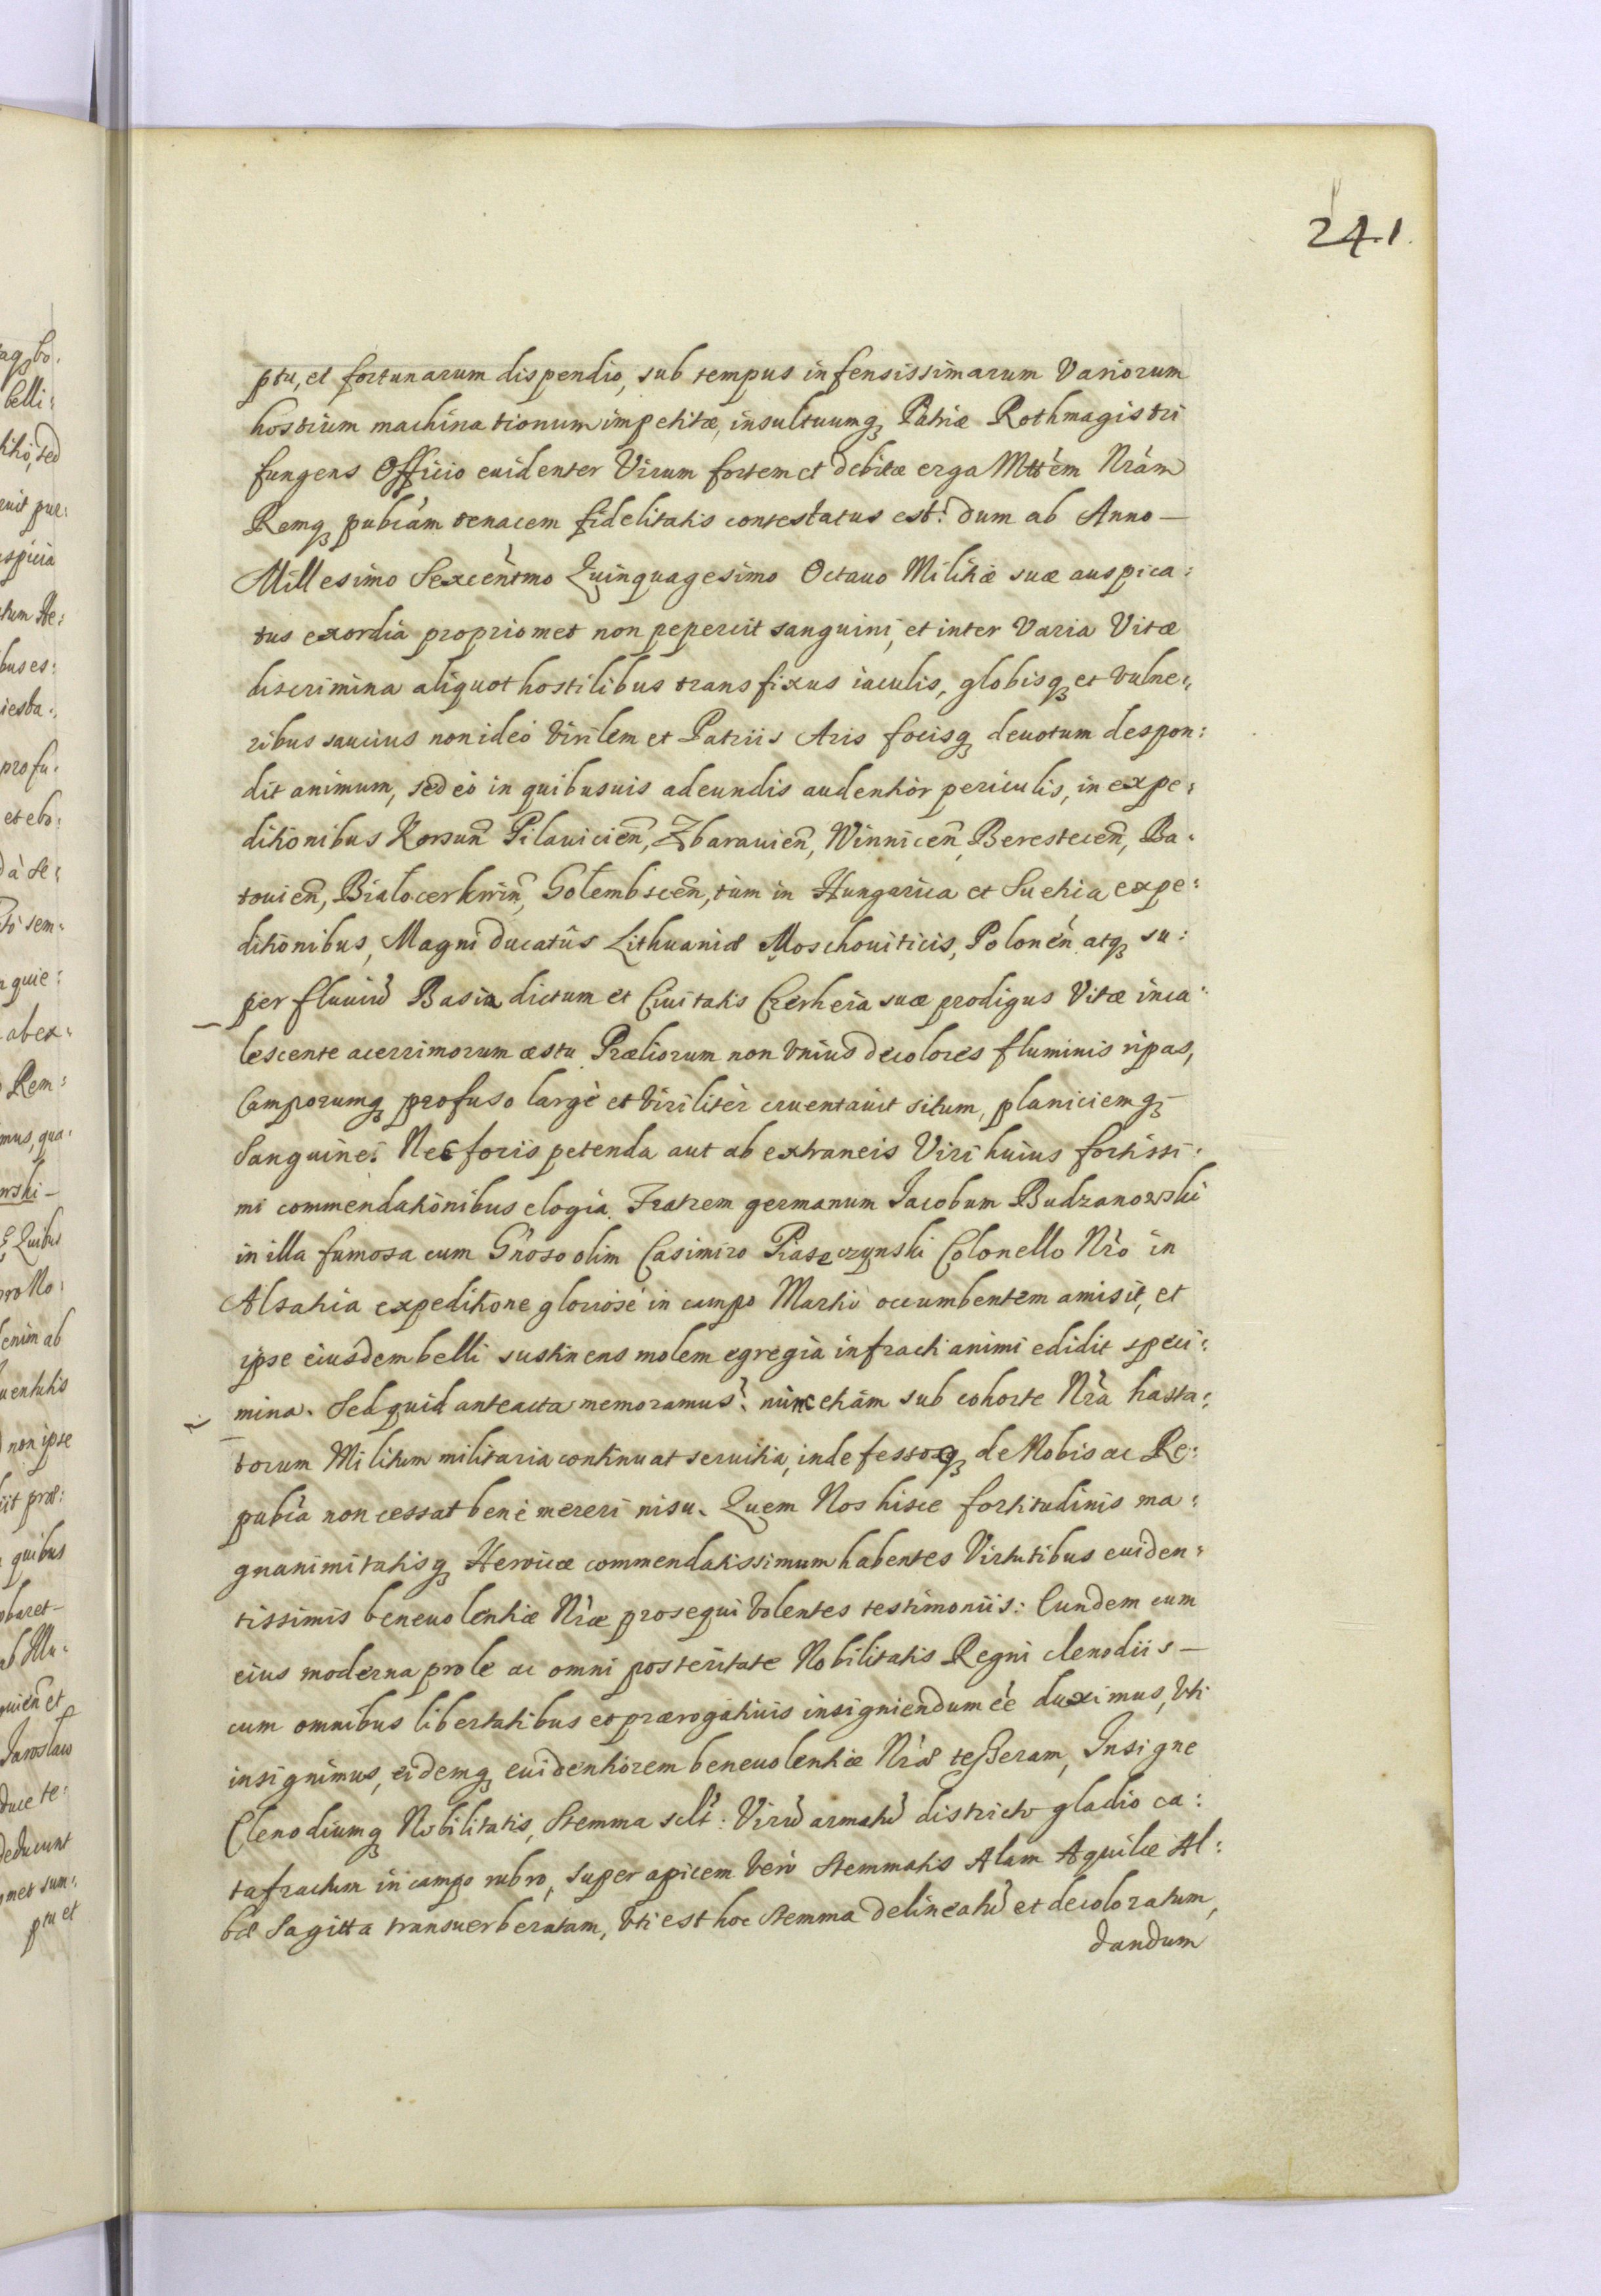 241.
ptu, et fortunarum dispendio, sub tempus infensissimarum Variorum
hostium machinationum impetitæ, insultuumq, Patriæ Rothmagistri
fungens Officio euidenter Virum fortem et debitæ erga Mttem Nram
Remq, pubcam tenacem fidelitatis contestatus est: dum ab Anno —
Millesimo Sexcentmo Quinquagesimo Octauo Militiæ suæ auspica:
tus exordia propriomet non pepercit sanguini, et inter Varia Vitæ
discrimina aliquot hostilibus transfixus iaculis, globisq, et vulne:
ribus saucius non ideò Virilem et Patriis Aris focisq, deuotum despon:
dit animum, sed eò in quibusuis adeundis audentiòr periculis, in expe:
ditionibus Korsun̄ Pilauicien̄, Zbarauien̄, Winnicen̄, Berestecen̄, Ba:
touien̄, Białocerkwin̄, Gołembscen̄, tum in Hungarica et Suetica expe:
ditionibus, Magni Ducatûs Lithuaniæ Moschouiticis, Polonen̄ atq, su:
per fluuiū Basia dictum et Ciuitatis Czerheia suæ prodigus Vitæ inca:
lescente acerrimorum æstu Præliorum non Vnius decolores fluminis ripas,
Camporumq, profuso largè et Viriliter cruentauit situm, planiciemq,
Sanguine. Nec foris petenda aut ab extraneis Viri huius fortissi:
mi commendationibus elogia. Fratrem germanum Jacobum Budzanowski
in illa fumosa cum Gnoso olim Casimiro Piaseczynski Colonello Nro in
Alsatia expeditione gloriosè in campo Martio occumbentem amisit, et
ipse eiusdem belli sustinens molem egregia infracti animi edidit speci:
mina. Sed quid anteacta memoramus? nunc etiam sub cohorte Nra hasta:
torum Militum militaria continuat seruitia, indefessoq, de Nobis ac Re:
pubca non cessat benè mereri nisu. Quem Nos hisce fortitudinis ma:
gnanimitatisq, Heroicæ commendatissimum habentes Virtutibus euiden:
tissimis beneuolentiæ Nræ prosequi Volentes testimoniis: Eundem cum
eius moderna prole ac omni posteritate Nobilitatis Regni clenodiis —
cum omnibus libertatibus et prærogatiuis insigniendum eē duximus, Vti
insignimus, eidemq, euidentiorem beneuolentiæ Nræ tesseram, Insigne
Clenodiumq, Nobilitatis, Stemma sclt: Virū armatū districto gladio ca:
tafractum in campo rubro, super apicem Verò Stemmatis Alam Aquilæ Al:
bæ Sagitta transuerberatam, Vti est hoc Stemma delineatū et decoloratum,
dandum